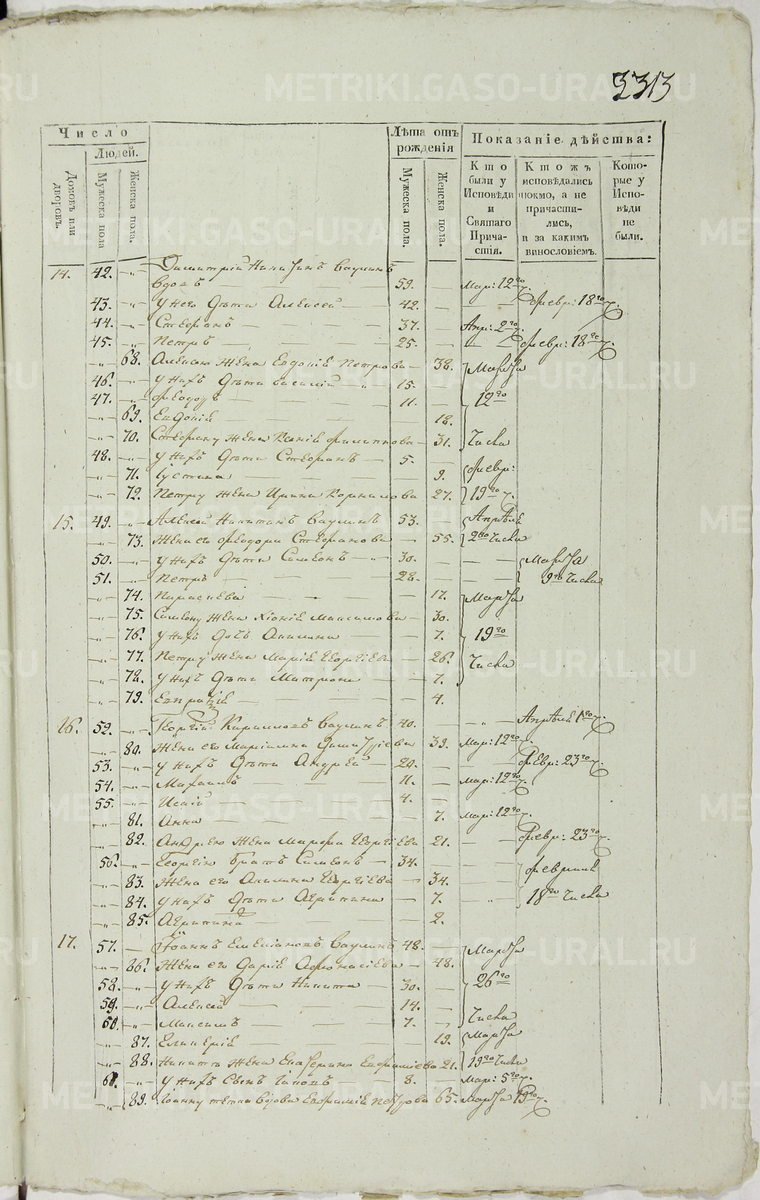 3313
Число
Людей.
Домовъ или дворовъ.
Мужеска пола
Женска пола.
Лѣта отъ рожденія
Мужеска пола.
Женска пола.
Показаніе дѣйства:
Кто были у Исповѣди и Святаго Причастія.
Ктожъ исповѣдались токмо, а не причастились, и за какимъ винословіемъ.
Которые у Исповѣди не были.
14. 42. Димитрій Никитинъ Ваулинъ
вдовъ 59. Мар: 12го
43. у него дѣти Алексей 42. Февр: 18го
44. Стефанъ 37. Апр: 2го
45. Петръ 25. Февр: 18го
68. Алексею жена Евдокія Петрова 38. Марта
46. у нихъ дѣти Василій 15.
47. Феодоръ 11. 12го
69. Евдокія 18.
70. Стефану жена Ксенія Филиппова 31. Числа
48. у нихъ дѣти Стефанъ 5. Февр:
71. Іустина 9.
72. Петру жена Ирина Корнилова 27. 19го
15. 49. Алексей Никитинъ Ваулинъ 53. Апрѣля
73. Жена его Феодора Стефанова 55. 2го Числа
50. у нихъ дѣти Симеонъ 30. Марта
51. Петръ 28. 9го Числа
74. Параскева 17. Марта
75. Симеону жена Хіонія Максимова 30.
76. у нихъ дочь Акилина 7. 19го
77. Петру жена Марія Георгіева 26. Числа
78. у нихъ дѣти Матрона 7.
79. Евпраксія 4.
16. 52. Георгій Кириловъ Ваулинъ 40. Апрѣля 1го
80. Жена его Маріамна Димитріева 39. Мар: 12го
53. у нихъ дѣти Андрей 20. Февр: 23го
54. Михаилъ 11. Мар: 12го
55. Исаій 4.
81. Анна 7. Мар: 12го
82. Андрею жена Марфа Георгіева 21. Февр: 23го
56. Георгію братъ Симеонъ 34. Февраля
83. Жена его Акилина Георгіева 34.
84. у нихъ дѣти Агрипина 7. 18го Числа
85. Агрипина 2.
17. 57. Іоаннъ Емеліановъ Ваулинъ 48. Марта
86. Жена его Дарія Афонасіева 48.
58. у нихъ дѣти Никита 30. 26го
59. Алексей 14.
60. Максимъ 7. Числа
87. Гликерія 19. Марта
88. Никитѣ жена Екатерина Евфиміева 21. 19го Числа
61. у нихъ сынъ 8. Мар: 5го
89. Іоанну тетка вдова Евфимія Петрова 65. Марта 19го
METRIKI.GASO-URAL.RU